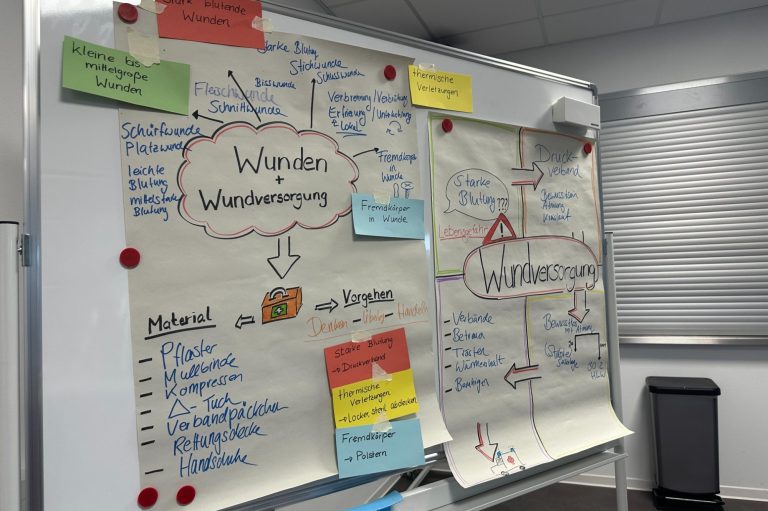 Stark blutende
Wunden
Kleine bis
mittelgroße
Wunden
thermische
Verletzungen
Starke Blutung
Stichwunde
Schusswunde
Bisswunde
Fleischwunde
Schnittwunde
Schürfwunde
Platzwunde
leichte
Blutung
mittelstarke
Blutung
Verbrennung/Verbrühung
Erfrierung/Unterkühlung
Lokal
Fremdkörper
in
Wunde
Wunden
+
Wundversorgung
Fremdkörper
in Wunde
Material
Vorgehen
Denken - - Handeln
- Pflaster
- Mullbinde
- Kompressen
- △-Tuch
- Verbandpäckchen
- Rettungsdecke
- Handschuhe
Starke Blutung
→ Druckverband
thermische
Verletzungen
→ Locker, steril abdecken
Fremdkörper
→ Polstern
Starke
Blutung???
Lebensgefahr
Druck-
verband
Bewusstsein
Atmung
Kreislauf
Wundversorgung
- Verbände
- Betreuu
- Trösten
- Wärmeerhalt
- Beruhigen
Bewusstlos
mit Atmung
30:2
HLW